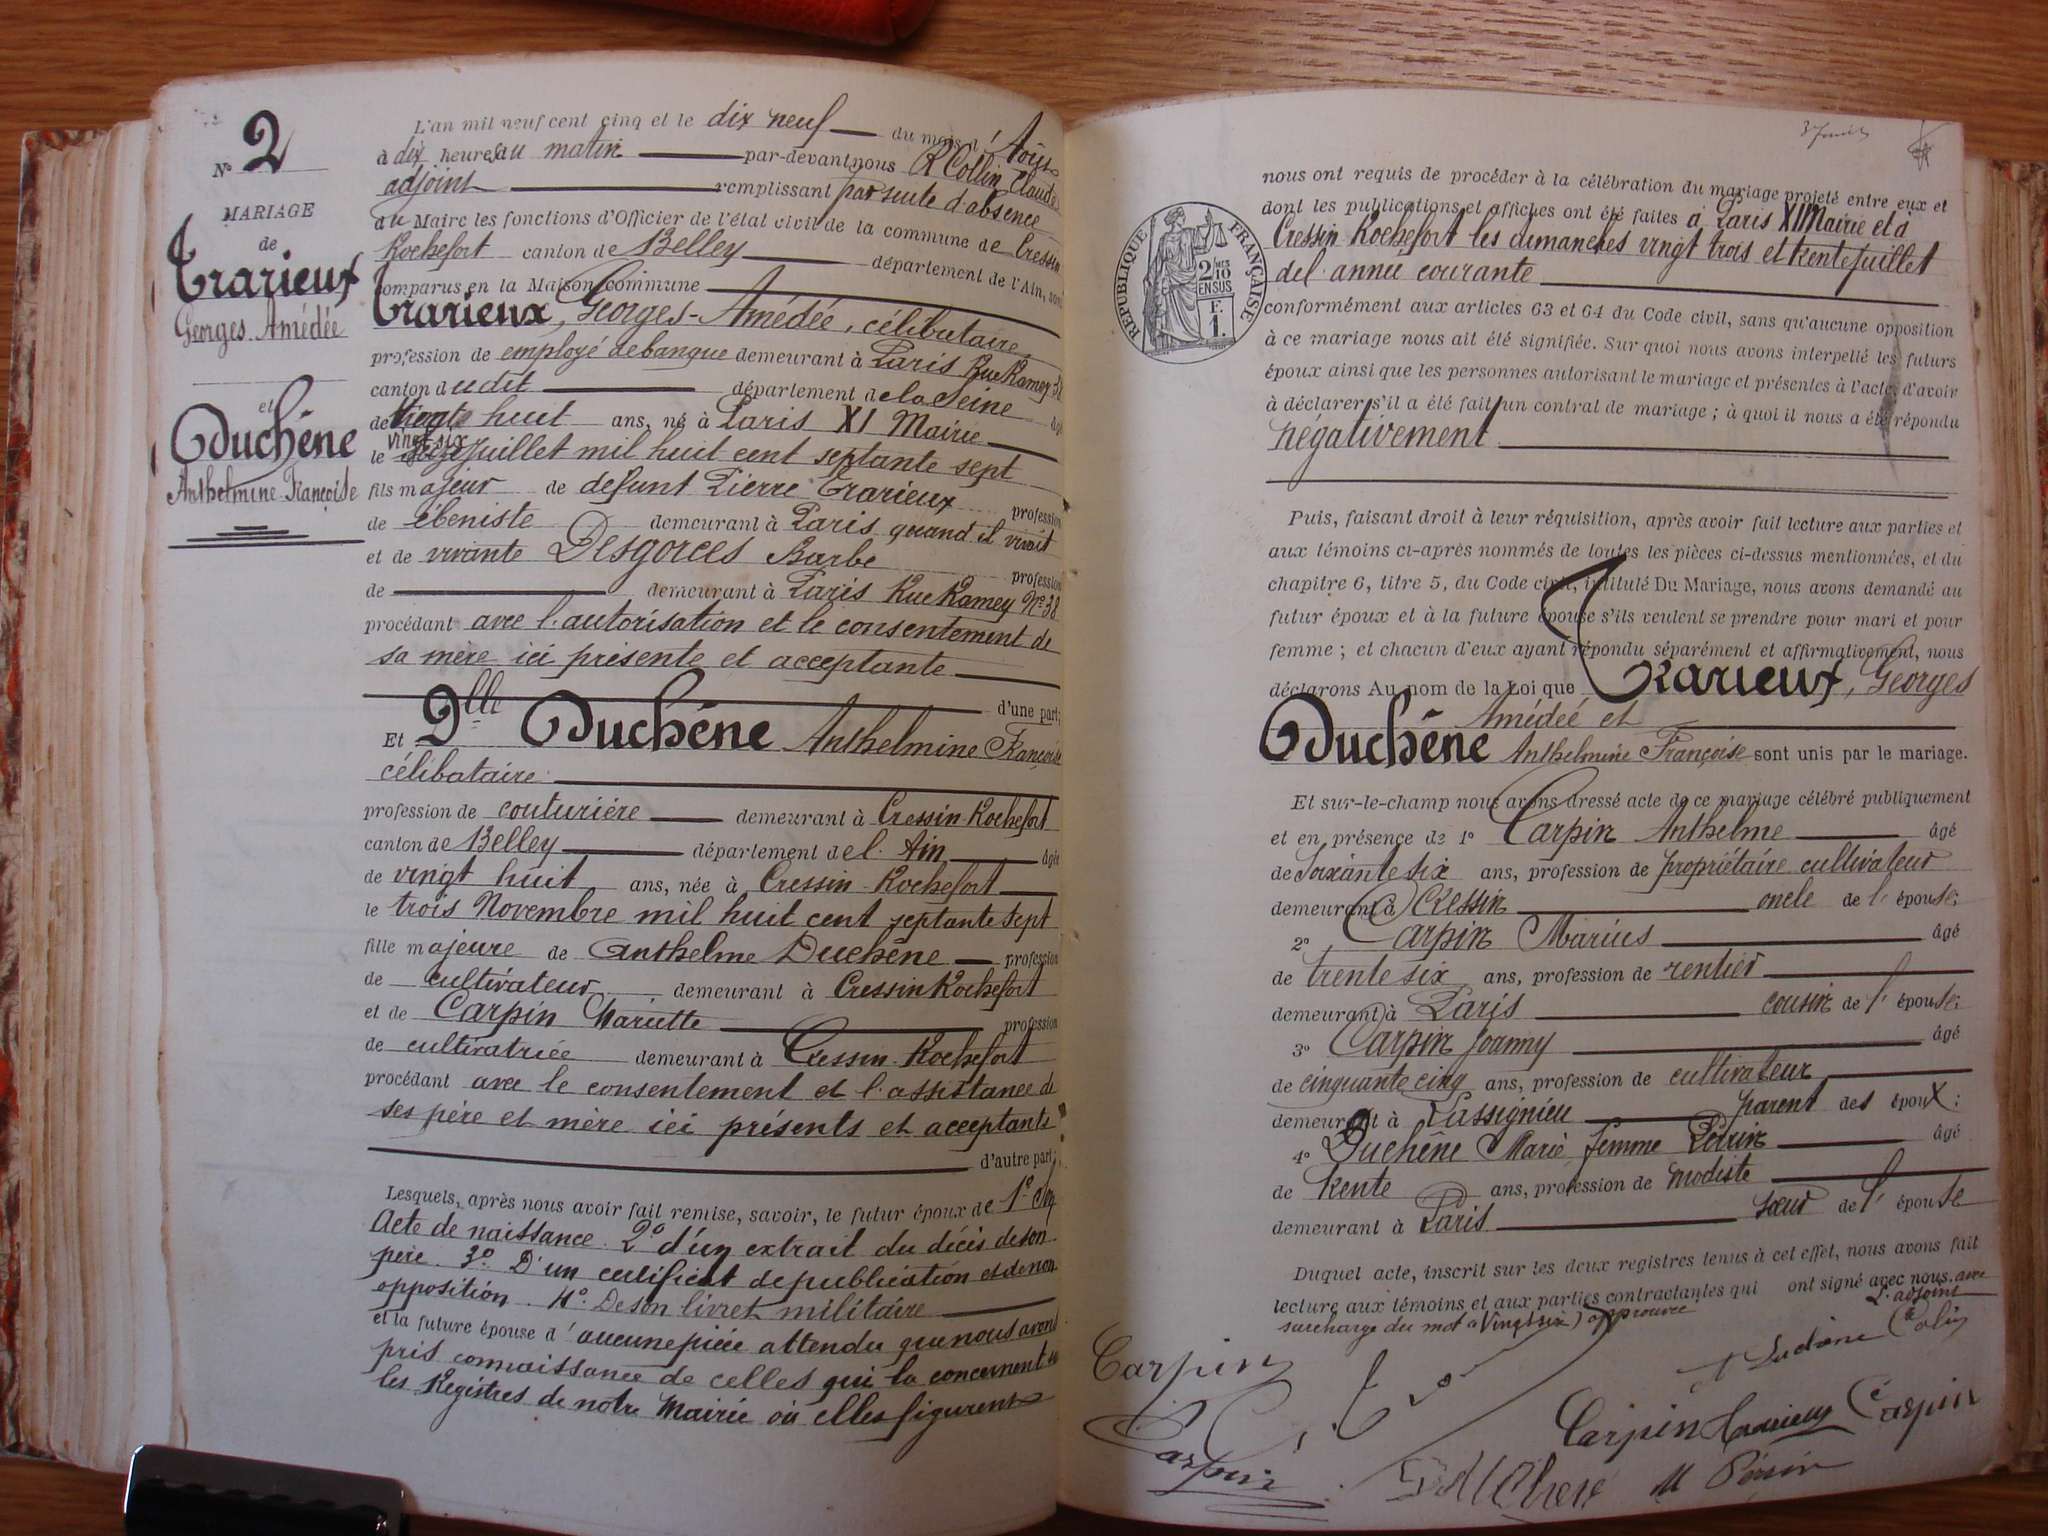 N° 2
MARIAGE
de
Trarieux
Georges Amédée
et
Duchêne
Anthelmine Françoise
L'an mil neuf cent cinq et le dix neuf du mois d'Août
à dix heures du matin par-devant nous Collin Claude
adjoint remplissant par suite d'absence
du Maire les fonctions d'Officier de l'état civil de la commune de Cressin
Rochefort canton de Belley département de l'Ain, sont
comparus en la Maison commune
Trarieux, Georges-Amédée, célibataire,
profession de employé de banque demeurant à Paris Rue Ramey 38
canton dudit département de la Seine âgé
de vingt huit ans, né à Paris XI Mairie
vingt six
le juillet mil huit cent septante sept
fils majeur de defunt Pierre Trarieux profession
de ébeniste demeurant à Paris quand il vivait
et de vivante Desgorces Barbe profession
de demeurant à Paris Rue Ramey N° 38
procédant avec l'autorisation et le consentement de
sa mère ici présente et acceptante
d'une part;
Et Dlle Duchêne Anthelmine Françoise
célibataire
profession de couturière demeurant à Cressin-Rochefort
canton de Belley département de l'Ain âgée
de vingt huit ans, née à Cressin-Rochefort
le trois Novembre mil huit cent septante sept
fille majeure de Anthelme Duchêne profession
de cultivateur demeurant à Cressin Rochefort
et de Carpin Mariette profession
de cultivatrice demeurant à Cressin-Rochefort
procédant avec le consentement et l'assistance de
ses père et mère ici présents et acceptants
d'autre part;
Lesquels, après nous avoir fait remise, savoir, le futur époux de 1° Son
Acte de naissance. 2° d'un extrait du décès de son
père. 3° D'un certificat de publication et de non
opposition. 4° De son livret militaire
et la future épouse d'aucune pièce attendu que nous avons
pris connaissance de celles qui la concernent
les Registres de notre Mairie où elles figurent
RÉPUBLIQUE FRANÇAISE
2/10
EN SUS
F.
1.
nous ont requis de procéder à la célébration du mariage projeté entre eux et
dont les publications et affiches ont été faites à Paris XI Mairie et à
Cressin-Rochefort les dimanches vingt trois et trente juillet
de l'année courante
conformément aux articles 63 et 64 du Code civil, sans qu'aucune opposition
à ce mariage nous ait été signifiée. Sur quoi nous avons interpellé les futurs
époux ainsi que les personnes autorisant le mariage et présentes à l'acte, d'avoir
à déclarer s'il a été fait un contrat de mariage ; à quoi il nous a été répondu
négativement
Puis, faisant droit à leur réquisition, après avoir fait lecture aux parties et
aux témoins ci-après nommés de toutes les pièces ci-dessus mentionnées, et du
chapitre 6, titre 5, du Code civil, intitulé Du Mariage, nous avons demandé au
futur époux et à la future épouse s'ils veulent se prendre pour mari et pour
femme ; et chacun d'eux ayant répondu séparément et affirmativement, nous
déclarons Au nom de la Loi que Trarieux, Georges
Amédée et
Duchêne Anthelmine Françoise sont unis par le mariage.
Et sur-le-champ nous avons dressé acte de ce mariage célébré publiquement
et en présence de 1° Carpin Anthelme âgé
de soixante six ans, profession de propriétaire cultivateur
demeurant à Cressin oncle de l'épouse;
2° Carpin Marius âgé
de trente six ans, profession de rentier
demeurant à Paris cousin de l'épouse;
3° Carpin Joanny âgé
de cinquante cinq ans, profession de cultivateur
demeurant à Lassignieu parent des époux;
4° Duchêne Marie femme Poirin âgé
de trente ans, profession de modiste
demeurant à Paris sœur de l'épouse
Duquel acte, inscrit sur les deux registres tenus à cet effet, nous avons fait
lecture aux témoins et aux parties contractantes qui ont signé avec nous. avec
surcharge du mot (Vingt six) approuvée
L'adjoint
Colin
Carpin
Carpin
Carpin Trarieux Carpin